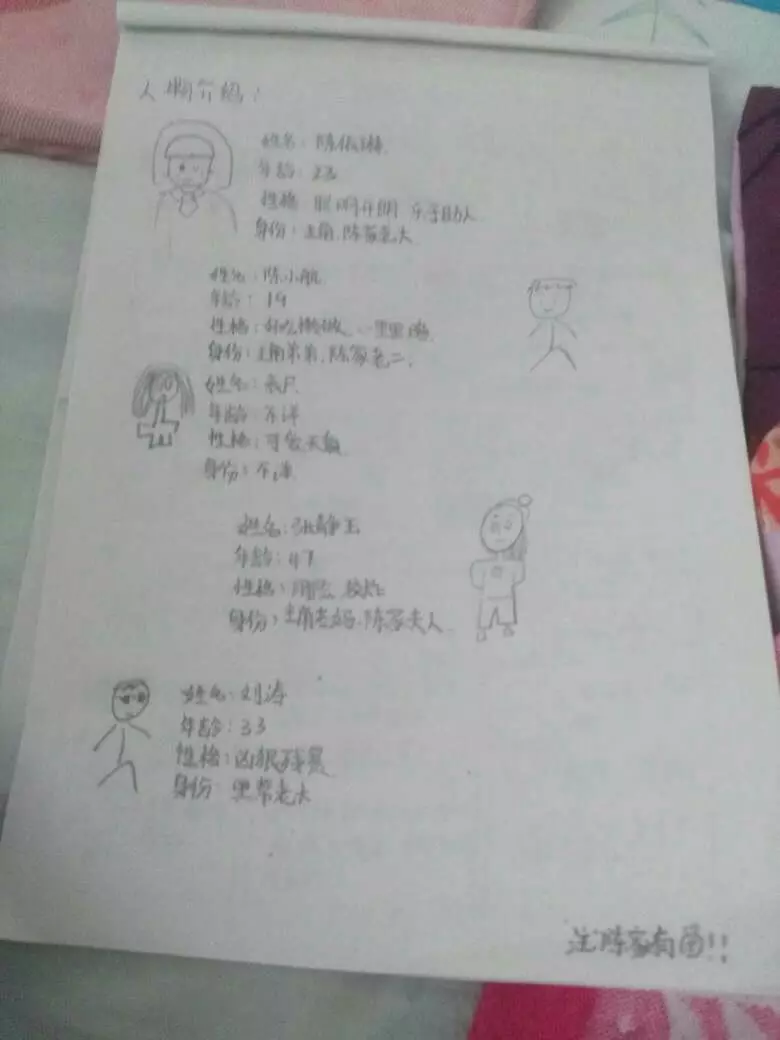 人物介绍:
姓名:陈依琳
年龄:23
性格:聪明开朗 乐于助人
身份:主角.陈家老大
姓名:陈小航
年龄:19
性格:好吃懒做
身份:主角弟弟.陈家老二.
姓名:
年龄:不详
性格:可爱天真
身份:不详
姓名:张静玉
年龄:47
性格:阴险
身份:主角老妈.陈家夫人
姓名:刘涛
年龄:33
性格:凶狠残暴
身份:黑帮老大
注:陈家有面!!